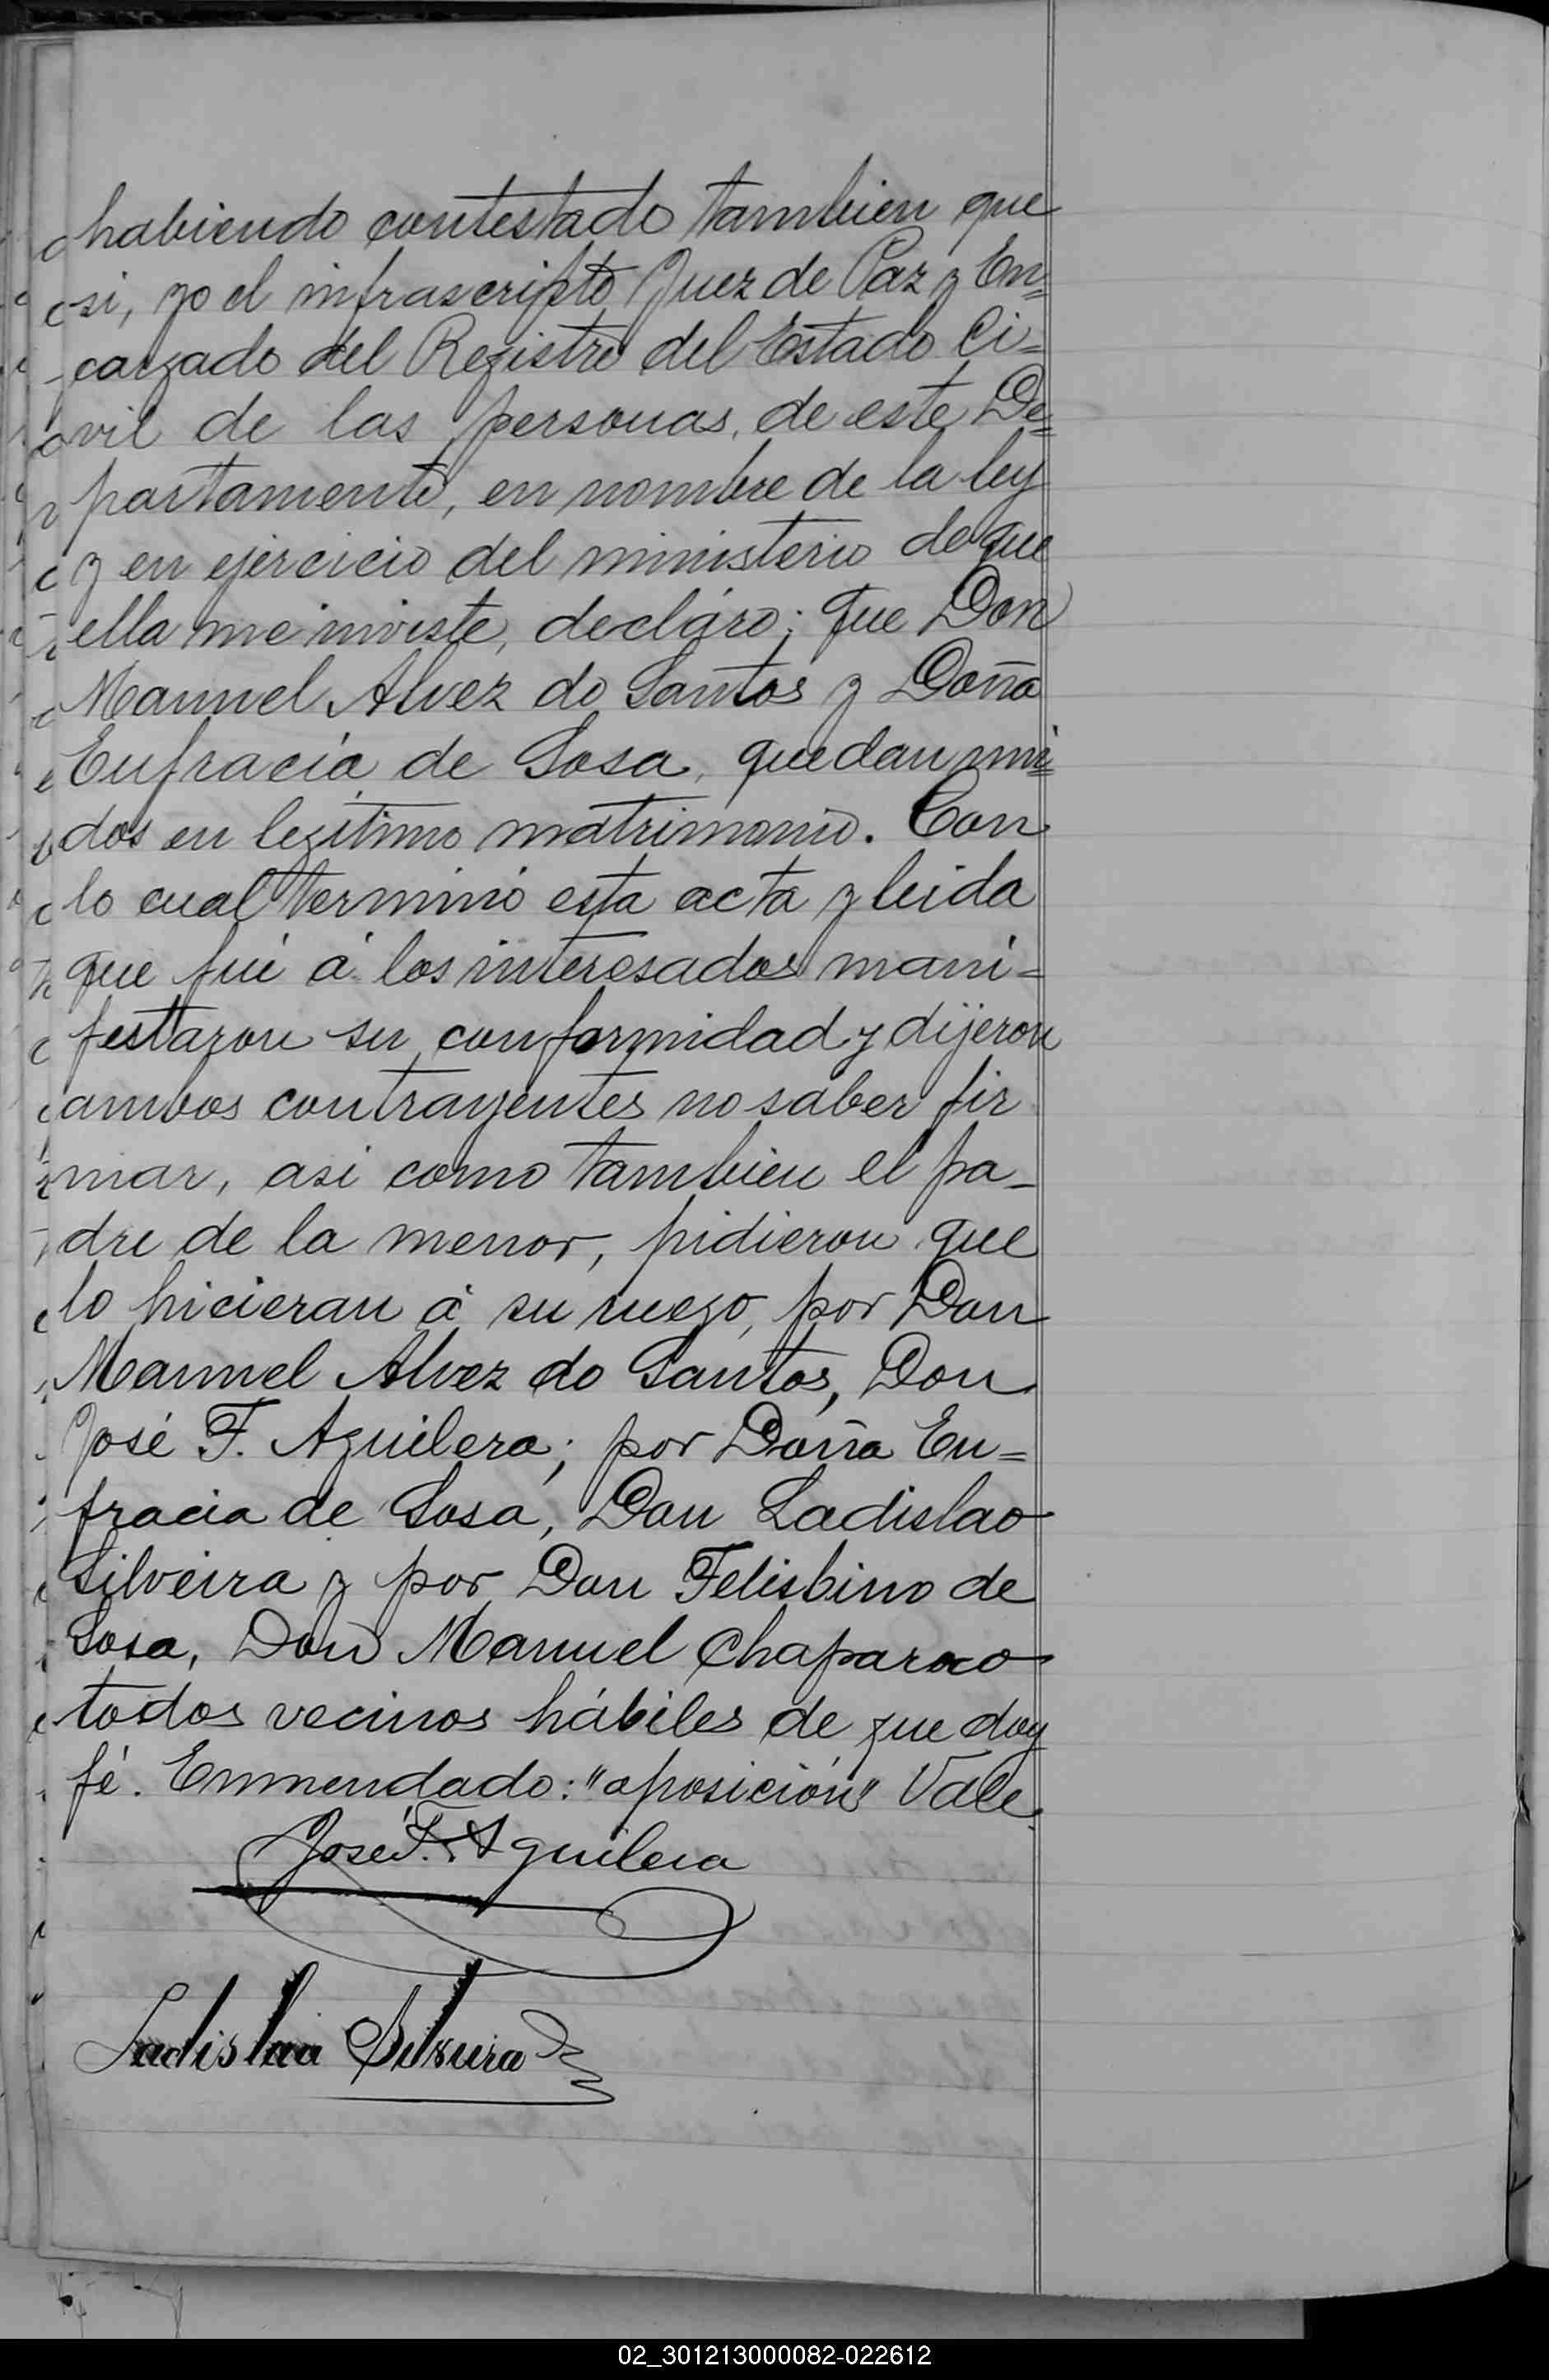 habiendo contestado tambien que
si, yo el infrascripto Juez de Paz y En=
cargado del Registro del Estado Ci=
vil de las personas, de este De=
partamento, en nombre de la ley
y en ejercicio del ministerio de que
ella me inviste, decláro; que Don
Manuel Alvez do Santos y Doña
Eufracia de Sosa, quedan uni=
dos en legítimo matrimonio. Con
lo cual terminó esta acta y leida
que fué á los interesados mani=
festaron su conformidad y dijeron
ambos contrayentes no saber fir
mar, asi como tambien el pa_
dre de la menor, pidieron que
lo hicieran á su ruego, por Don
Manuel Alvez do Santos, Don
José F. Aguilera; por Doña Eu=
fracia de Sosa, Don Ladislao
Silveira y por Don Felisbino de
Sosa, Don Manuel Chaparro
todos vecinos hábiles de que doy
fé. Enmendado: "oposición" Vale.
José F. Aguilera
Ladislao Silveira
02_301213000082-022612